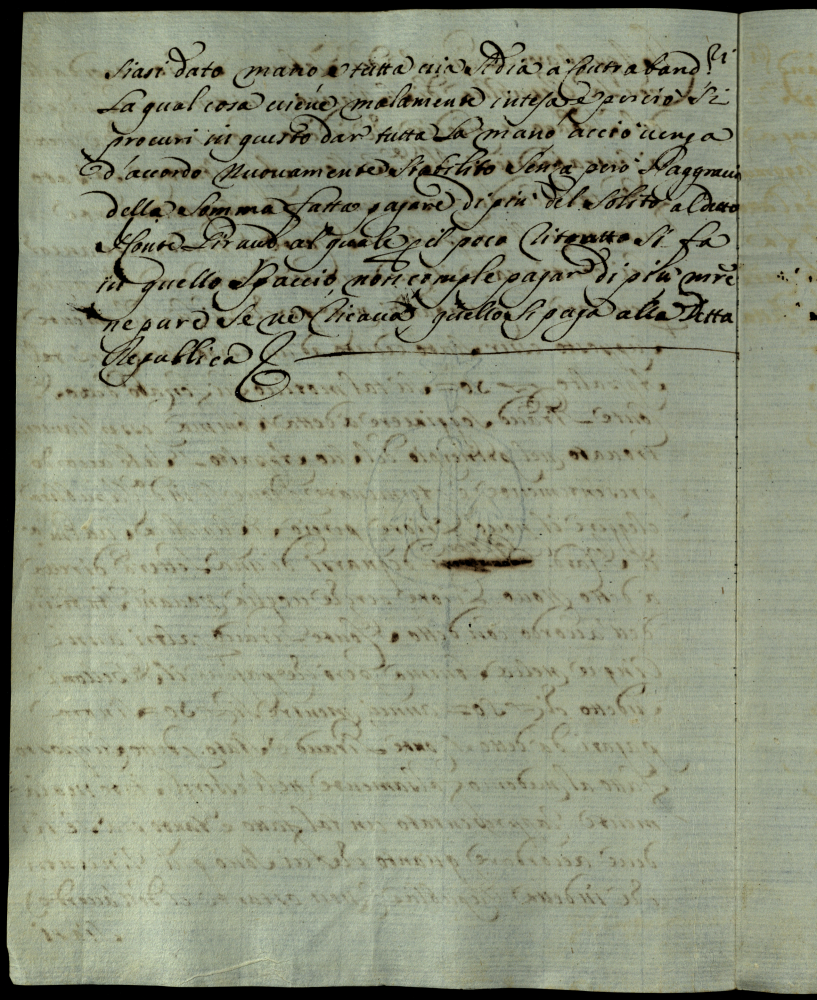 siasi dato mano e tutta via si dia a Contraband.ri
La qual cosa viene malamente intesa, e perciò si
procuri in questo dar tutta la mano acciò venga
d'accordo nuovamente stabilito senza però l'aggravio
della Somma fatta pagare di più del Solito al detto
Conte Giraud, al quale p il poco ritratto si fa
in quello Spaccio non comple pagar di più mre
nepure se ne ricava quello si paga alla detta
Republica